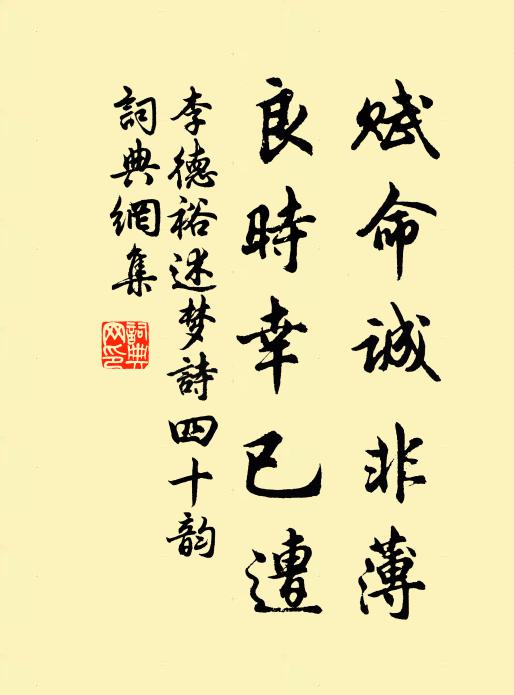 赋命誠非薄
良時幸已遭
李德裕述梦詩四十韵
詞典網集
詞典
网印